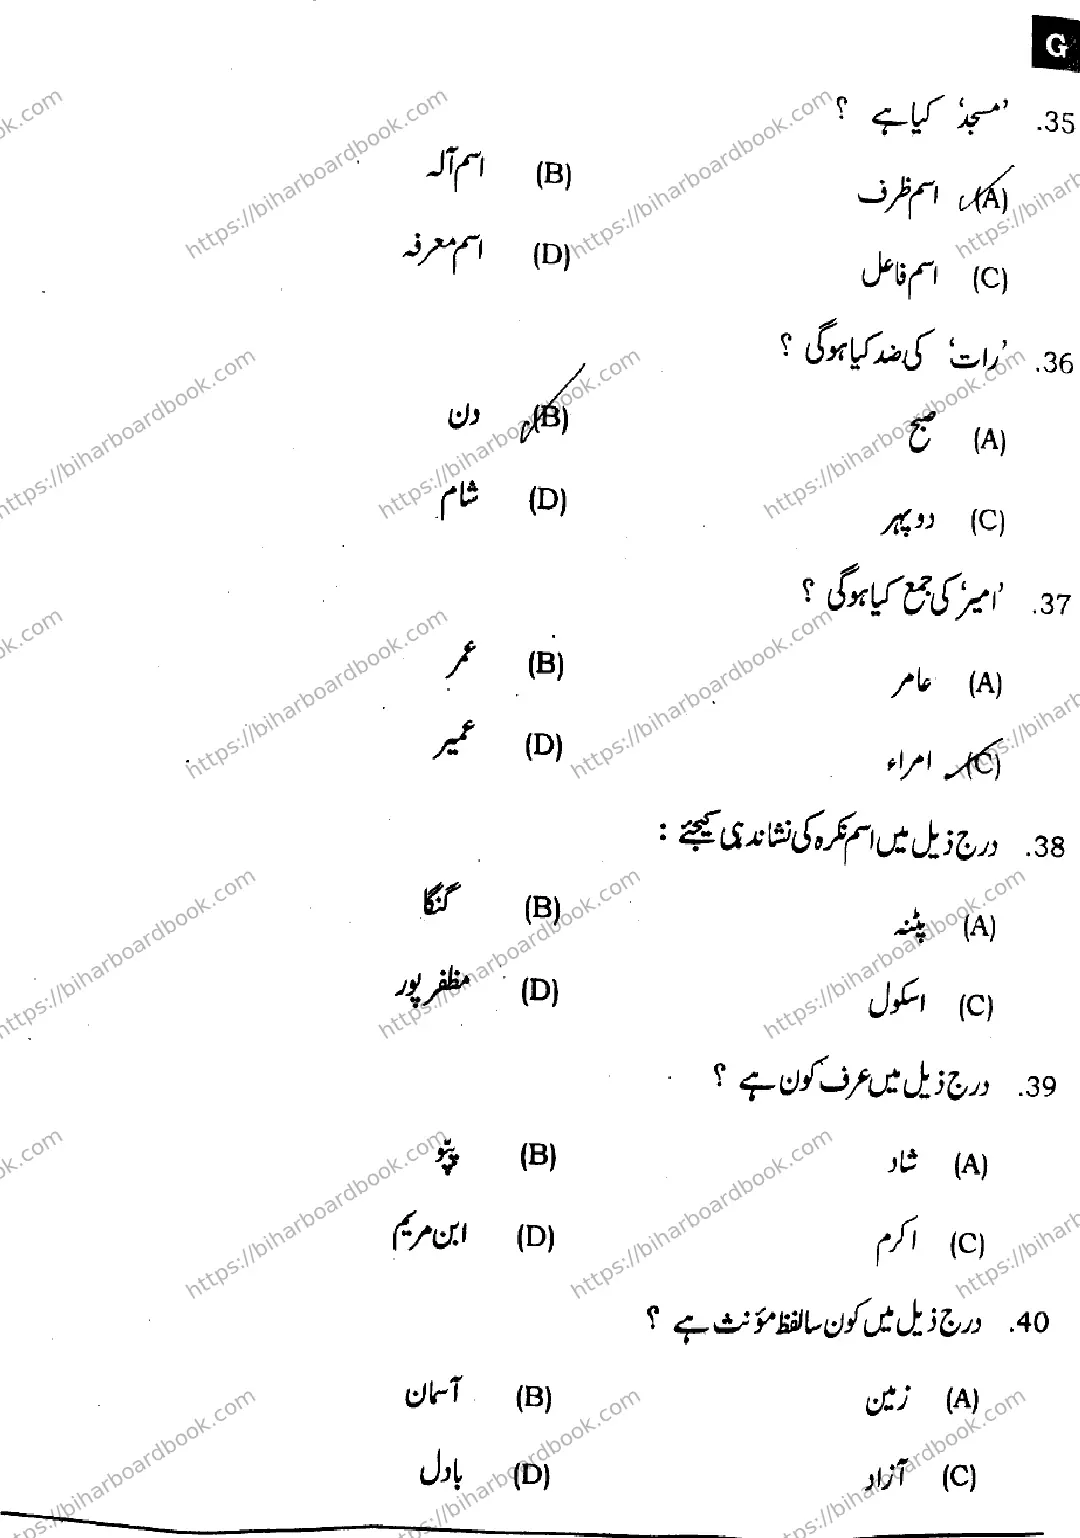 G
35. 'مسجد' کیا ہے ؟
(A) اسم ظرف (B) اسم آلہ
(C) اسم فاعل (D) اسم معرفہ
36. 'رات' کی ضد کیا ہوگی ؟
(A) صبح (B) دن
(C) دوپہر (D) شام
37. 'امیر' کی جمع کیا ہوگی ؟
(A) عامر (B) عمر
(C) امراء (D) عمیر
38. درج ذیل میں اسم نکرہ کی نشاندہی کیجئے :
(A) پٹنہ (B) گنگا
(C) اسکول (D) مظفر پور
39. درج ذیل میں عرف کون ہے ؟
(A) شاد (B) پپّو
(C) اکرم (D) ابن مریم
40. درج ذیل میں کون سا لفظ مؤنث ہے ؟
(A) زمین (B) آسمان
(C) آزاد (D) بادل
https://biharboardbook.com